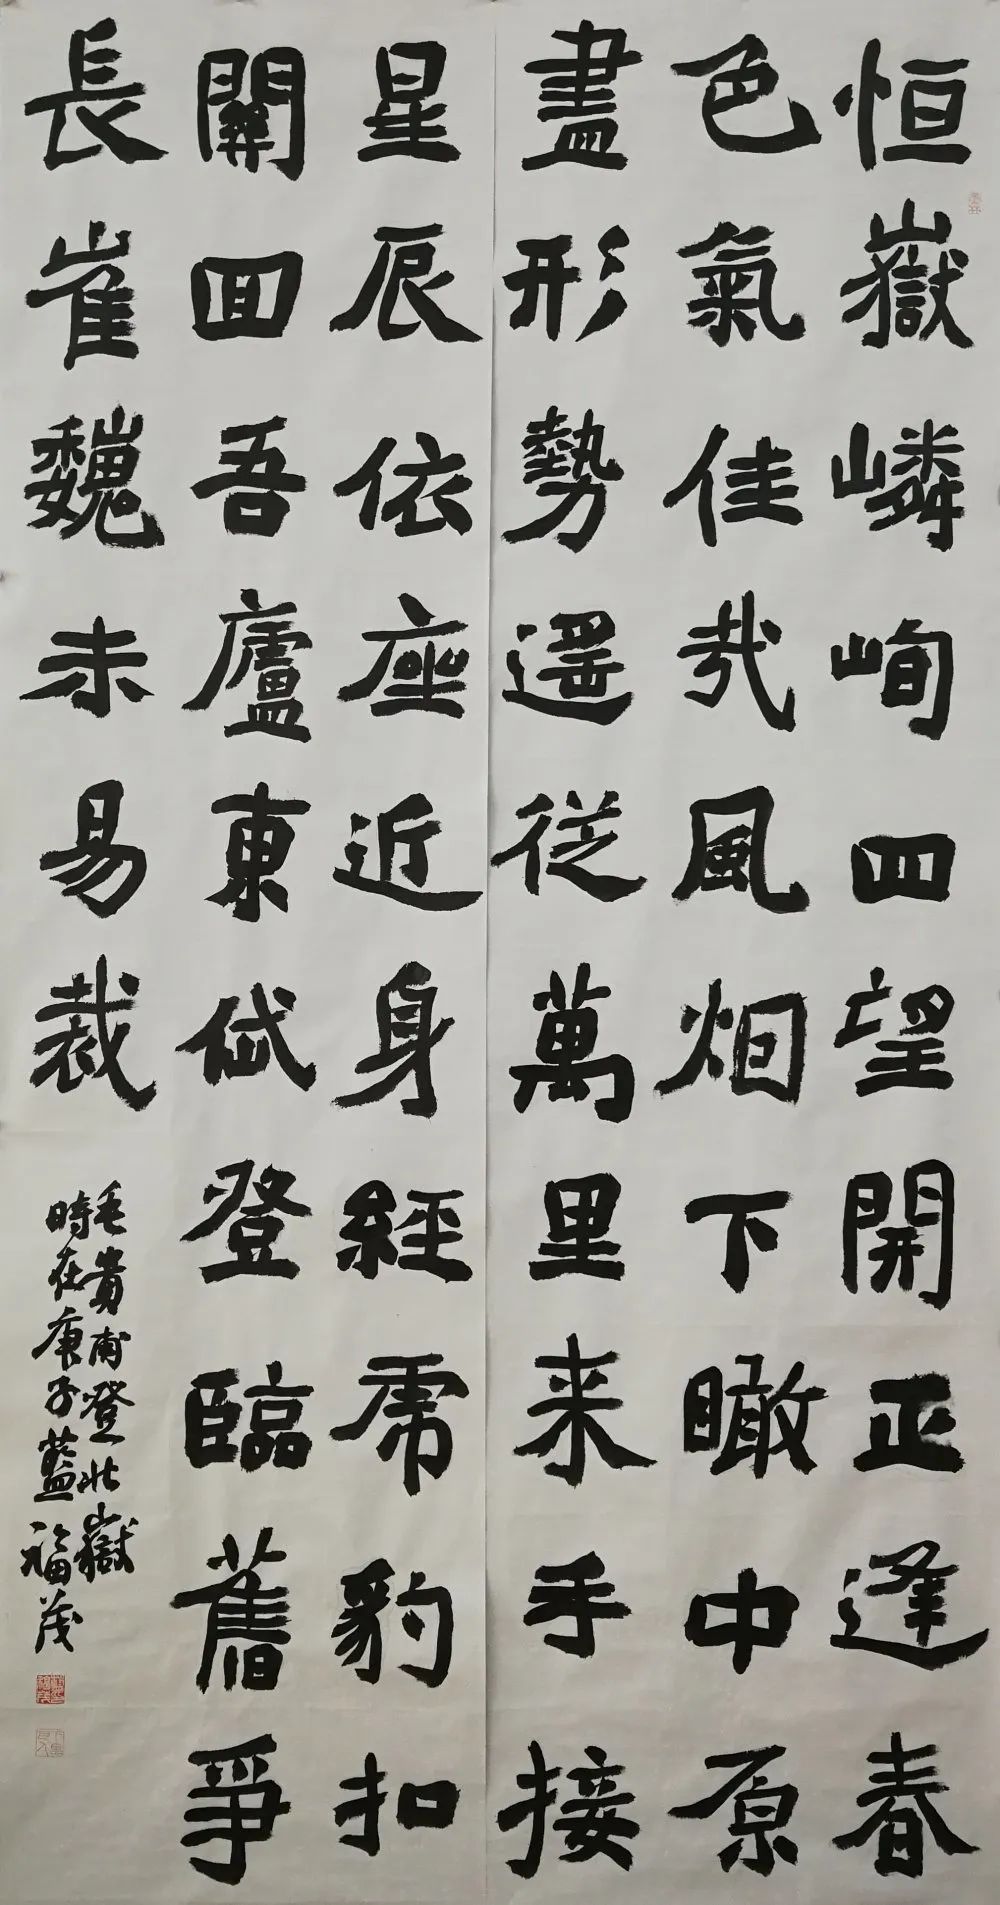 恒嶽嶙峋四望開正逢春
色氣佳哉風烟下瞰中原
盡形勢遥従萬里来手接
星辰依座近身經虎豹扣
關回吾廬東岱登臨舊爭
長崔巍未易裁
毛貴甫登北嶽
時在庚子藍福茂